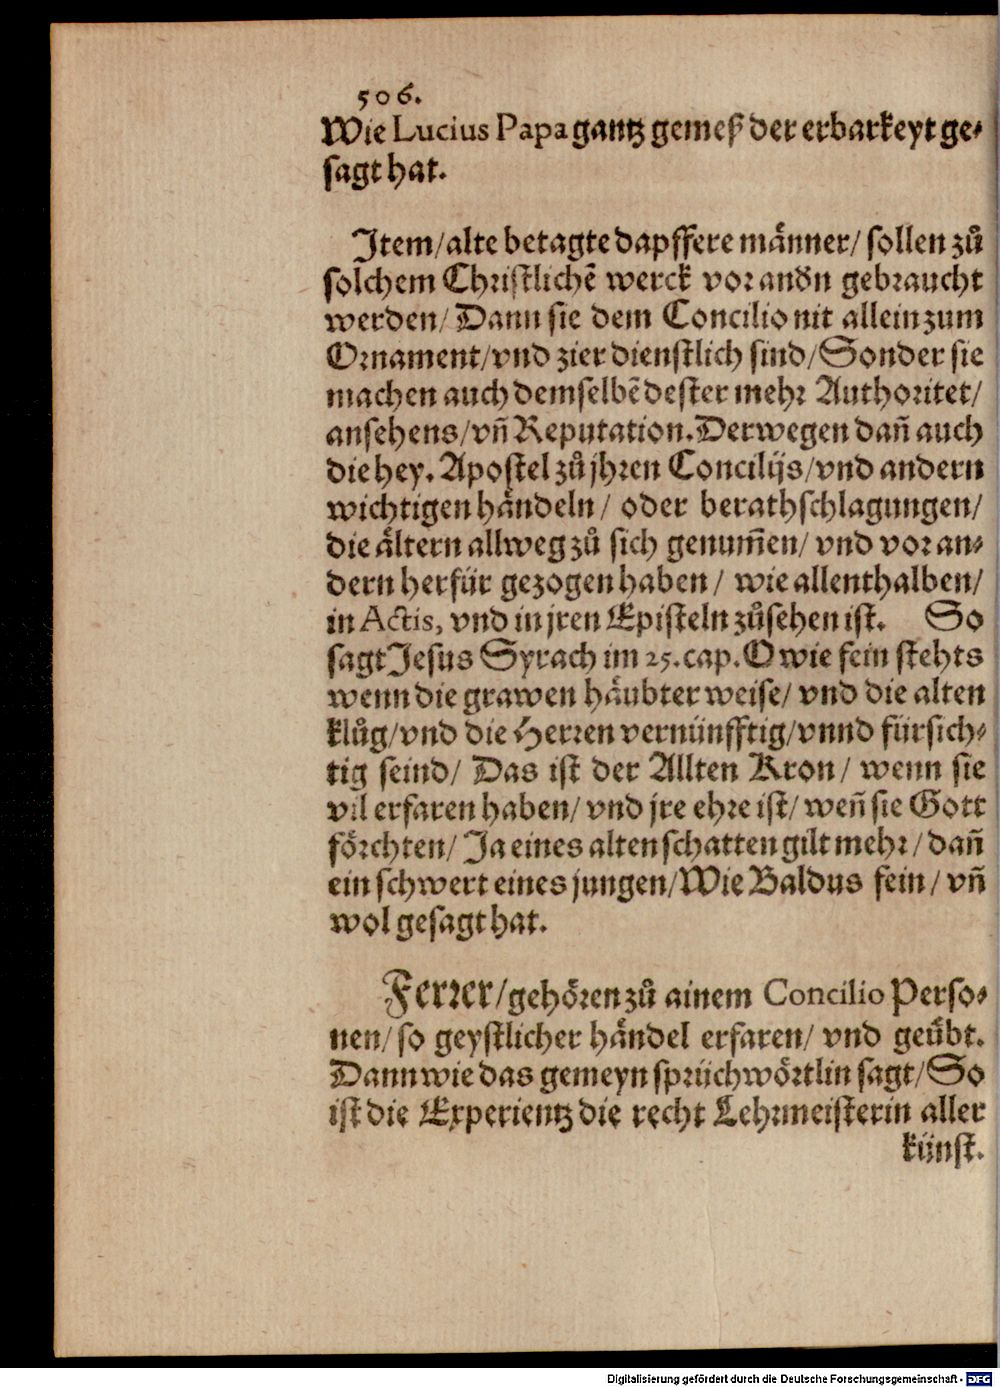 506.
Wie Lucius Papa gantz gemeß der erbarkeyt ge⸗
sagt hat.
Jtem/ alte betagte dapffere männer/ sollen zů
solchem Christlichẽ werck vor andn gebraucht
werden/ Dann sie dem Concilio nit allein zum
Ornament/ vnd zier dienstlich sind/ Sonder sie
machen auch demselbẽ dester mehr Authoritet/
ansehens/ vñ Reputation. Derwegen dañ auch
die hey. Apostel zů jhren Concilijs/ vnd andern
wichtigen händeln/ oder berathschlagungen/
die ältern allweg zů sich genum̃en/ vnd vor an⸗
dern herfür gezogen haben/ wie allenthalben/
in Actis, vnd in jren Episteln zůsehen ist. So
sagt Jesus Syrach im 25. cap. O wie fein stehts
wenn die grawen häubter weise/ vnd die alten
klůg/ vnd die Herren vernünfftig/ vnnd fürsich⸗
tig seind/ Das ist der Allten Kron/ wenn sie
vil erfaren haben/ vnd jre ehre ist/ weñ sie Gott
förchten/ Ja eines alten schatten gilt mehr/ dañ
ein schwert eines jungen/ Wie Baldus fein/ vñ
wol gesagt hat.
Ferrer/ gehören zů ainem Concilio Perso⸗
nen/ so geystlicher händel erfaren/ vnd geübt.
Dann wie das gemeyn sprüchwörtlin sagt/ So
ist die Experientz die recht Lehrmeisterin aller
künst.
Digitalisierung gefördert durch die Deutsche Forschungsgemeinschaft - DFG